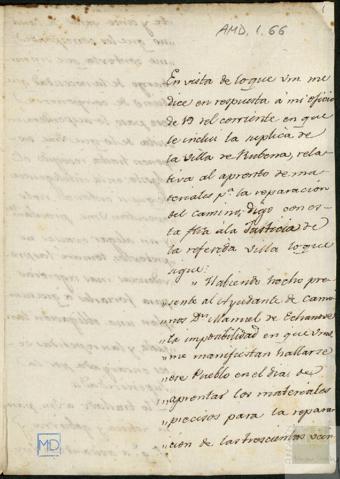 AMD, 1. 66
En vista de lo que vm me
dice en respuesta á mi oficio
de 19 del corriente en que
le inclui la suplica de
la villa de Rubena, rela-
tiva al apronto de ma-
teriales pa. la reparacion
del camino, digo con es-
ta fha á la Justicia de
la referida villa lo que
sigue:
" Haviendo hecho pre-
sente al Ayudante de Cami-
nos Dn. Manuel de Echanove
"la imposibilidad en que vms
"me manifiestan hallarse
"ese Pueblo en el dia, de
"aprontar los materiales
"precisos para la repara-
"cion de las trescientas
MD